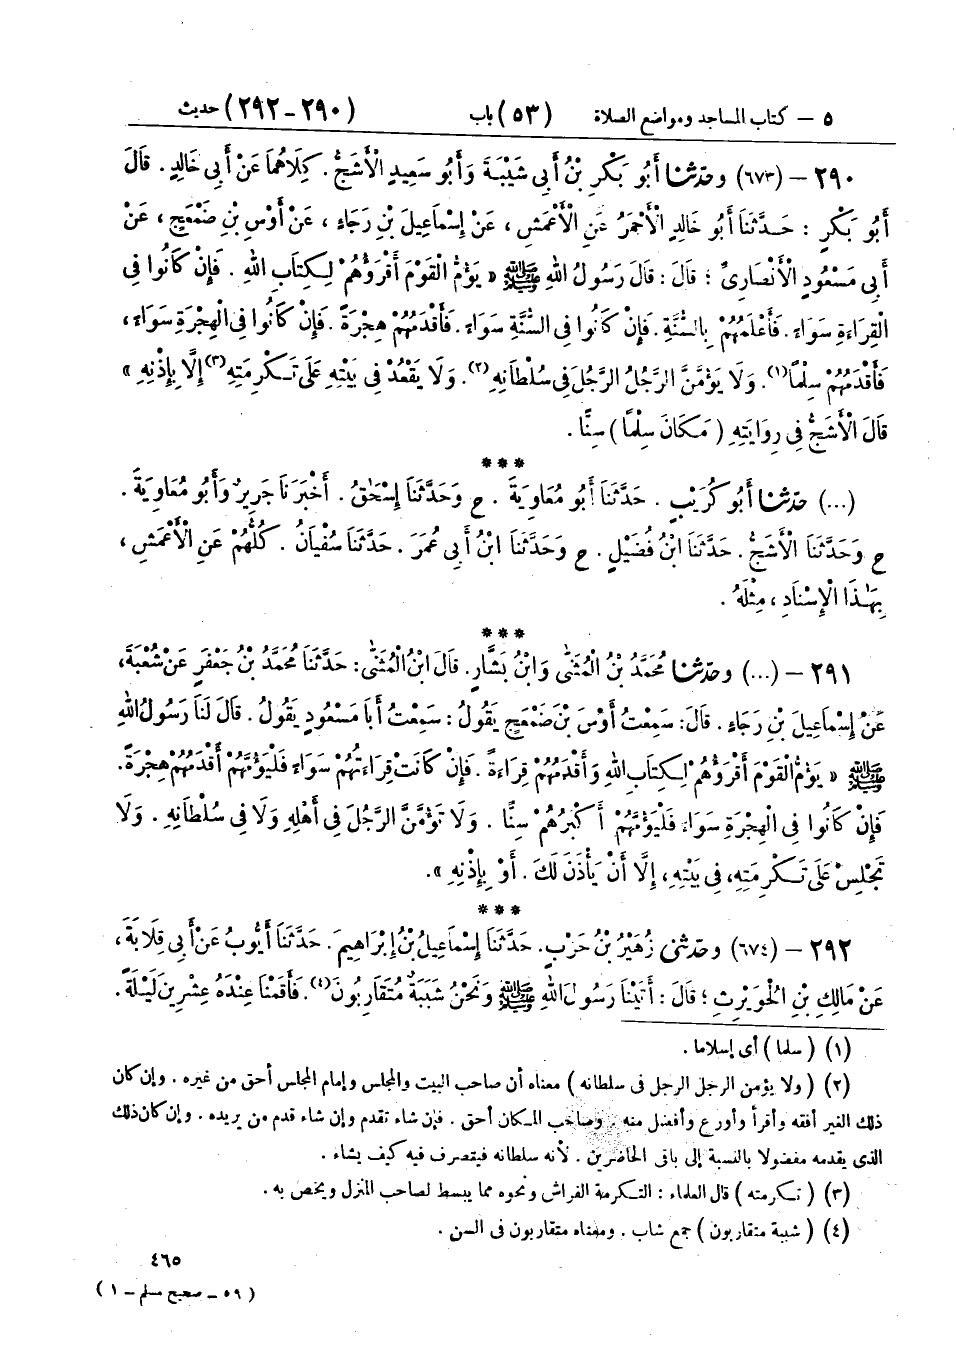 ٥ – كتاب المساجد ومواضع الصلاة (٥٣) باب (٢٩٠-٢٩٢) حديث
٢٩٠ – (٦٧٣) وحَدَّثَنَا أَبُو بَكْرِ بْنُ أَبِي شَيْبَةَ وَأَبُو سَعِيدٍ الْأَشَجُّ . كِلَاهُمَا عَنْ أَبِي خَالِدٍ . قَالَ
أَبُو بَكْرٍ : حَدَّثَنَا أَبُو خَالِدٍ الْأَحْمَرُ عَنِ الْأَعْمَشِ ، عَنْ إِسْمَاعِيلَ بْنِ رَجَاءٍ ، عَنْ أَوْسِ بْنِ ضَمْعَجٍ ، عَنْ
أَبِي مَسْعُودٍ الْأَنْصَارِيِّ ؛ قَالَ : قَالَ رَسُولُ اللهِ ﷺ « يَؤُمُّ الْقَوْمَ أَقْرَؤُهُمْ لِكِتَابِ اللهِ . فَإِنْ كَانُوا فِي
الْقِرَاءَةِ سَوَاءً . فَأَعْلَمُهُمْ بِالسُّنَّةِ . فَإِنْ كَانُوا فِي السُّنَّةِ سَوَاءً . فَأَقْدَمُهُمْ هِجْرَةً . فَإِنْ كَانُوا فِي الْهِجْرَةِ سَوَاءً ،
فَأَقْدَمُهُمْ سِلْمًا(١). وَلَا يَؤُمَّنَّ الرَّجُلُ الرَّجُلَ فِي سُلْطَانِهِ(٢). وَلَا يَقْعُدْ فِي بَيْتِهِ عَلَى تَكْرِمَتِهِ(٣) إِلَّا بِإِذْنِهِ »
قَالَ الْأَشَجُّ فِي رِوَايَتِهِ ( مَكَانَ سِلْمًا ) سِنًّا .
***
(...) حَدَّثَنَا أَبُو كُرَيْبٍ . حَدَّثَنَا أَبُو مُعَاوِيَةَ . ح وَحَدَّثَنَا إِسْحَاقُ . أَخْبَرَنَا جَرِيرٌ وَأَبُو مُعَاوِيَةَ .
ح وَحَدَّثَنَا الْأَشَجُّ . حَدَّثَنَا ابْنُ فُضَيْلٍ . ح وَحَدَّثَنَا ابْنُ أَبِي عُمَرَ . حَدَّثَنَا سُفْيَانُ . كُلُّهُمْ عَنِ الْأَعْمَشِ ،
بِهَذَا الْإِسْنَادِ ، مِثْلَهُ .
***
٢٩١ – (...) وحَدَّثَنَا مُحَمَّدُ بْنُ الْمُثَنَّى وَابْنُ بَشَّارٍ. قَالَ ابْنُ الْمُثَنَّى: حَدَّثَنَا مُحَمَّدُ بْنُ جَعْفَرٍ عَنْ شُعْبَةَ،
عَنْ إِسْمَاعِيلَ بْنِ رَجَاءٍ . قَالَ: سَمِعْتُ أَوْسَ بْنَ ضَمْعَجٍ يَقُولُ : سَمِعْتُ أَبَا مَسْعُودٍ يَقُولُ . قَالَ لَنَا رَسُولُ اللهِ
ﷺ « يَؤُمُّ الْقَوْمَ أَقْرَؤُهُمْ لِكِتَابِ اللهِ وَأَقْدَمُهُمْ قِرَاءَةً . فَإِنْ كَانَتْ قِرَاءَتُهُمْ سَوَاءً فَلْيَؤُمَّهُمْ أَقْدَمُهُمْ هِجْرَةً.
فَإِنْ كَانُوا فِي الْهِجْرَةِ سَوَاءً فَلْيَؤُمَّهُمْ أَكْبَرُهُمْ سِنًّا . وَلَا تَؤُمَّنَّ الرَّجُلَ فِي أَهْلِهِ وَلَا فِي سُلْطَانِهِ . وَلَا
تَجْلِسْ عَلَى تَكْرِمَتِهِ، فِي بَيْتِهِ ، إِلَّا أَنْ يَأْذَنَ لَكَ . أَوْ بِإِذْنِهِ ».
***
٢٩٢ – (٦٧٤) وحَدَّثَنِي زُهَيْرُ بْنُ حَرْبٍ. حَدَّثَنَا إِسْمَاعِيلُ بْنُ إِبْرَاهِيمَ. حَدَّثَنَا أَيُّوبُ عَنْ أَبِي قِلَابَةَ ،
عَنْ مَالِكِ بْنِ الْحُوَيْرِثِ ؛ قَالَ : أَتَيْنَا رَسُولَ اللهِ ﷺ وَنَحْنُ شَبَبَةٌ مُتَقَارِبُونَ(٤). فَأَقَمْنَا عِنْدَهُ عِشْرِينَ لَيْلَةً .
(١) ( سلما ) أى إسلاما .
(٢) ( ولا يؤمن الرجل الرجل فى سلطانه ) معناه أن صاحب البيت والمجلس وإمام المجلس أحق من غيره . وإن كان
ذلك الغير أفقه وأقرأ وأورع وأفضل منه . وصاحب المكان أحق . فإن شاء تقدم وإن شاء قدم من يريده . وإن كان ذلك
الذى يقدمه مفضولا بالنسبة إلى باقى الحاضرين . لأنه سلطانه فيتصرف فيه كيف يشاء .
(٣) ( تكرمته ) قال العلماء : التكرمة الفراش ونحوه مما يبسط لصاحب المنزل ويخص به .
(٤) ( شببة متقاربون ) جمع شاب . ومعناه متقاربون فى السن .
٤٦٥
( ٥٩ – صحيح مسلم – ١ )